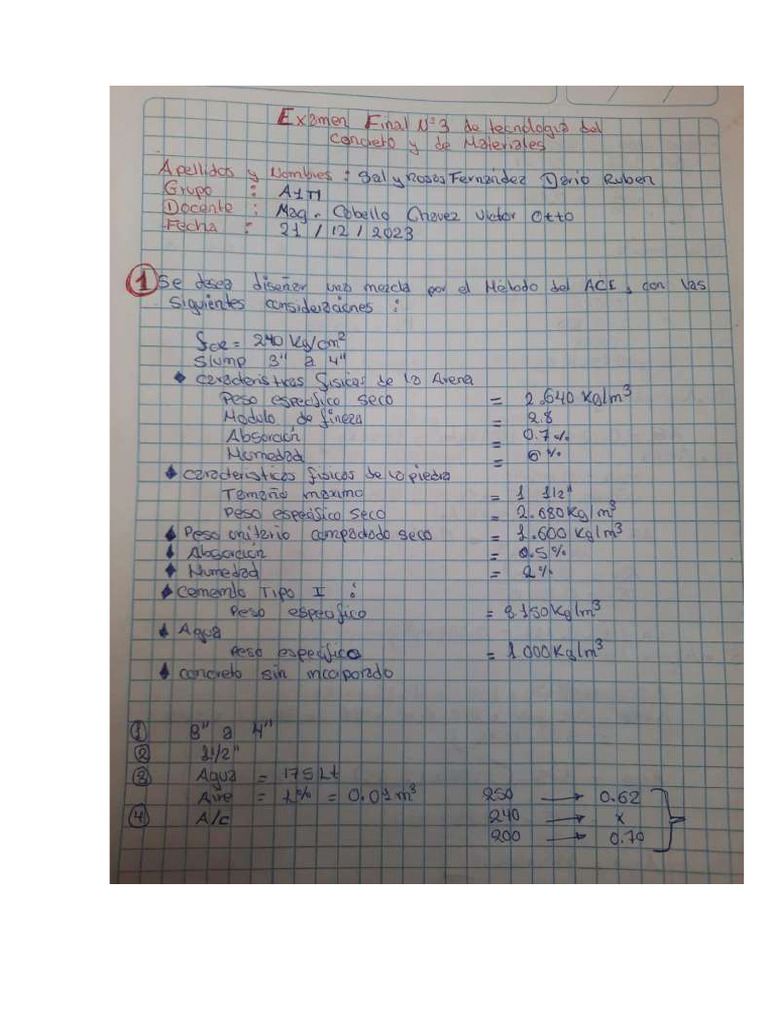 Examen Final N°3 de tecnologia del
concreto y de Materiales
Apellidos y Nombres : Sal y Rosas Fernandez Dario Ruben
Grupo : A1T1
Docente : Mag. Cabello Chavez Victor Otto
Fecha : 21 / 12 / 2023
1 Se desea diseñar una mezcla por el Método del ACI, con las
siguientes consideraciones :
fcr = 240 kg/cm²
Slump 3" a 4"
Caracteristicas fisicas de la Arena
Peso especifico seco = 2.640 Kg/m³
Modulo de fineza = 2.8
Absorción = 0.7 %
Humedad = 6 %
Caracteristicas fisicas de la piedra
Temaño maximo = 1 1/2"
Peso especifico seco = 2.680 Kg/m³
Peso unitario compactado seco = 1.600 Kg/m³
Absorción = 0.5 %
Humedad = 2 %
Cemento Tipo I :
Peso especifico = 3150 Kg/m³
Agua
Peso especifico = 1 000 Kg/m³
Concreto sin incorporado
1 3" a 4"
2 1 1/2"
3 Agua = 175 Lt
Aire = 1% = 0.01 m³ 250 → 0.62
4 A/c 240 → x
200 → 0.70